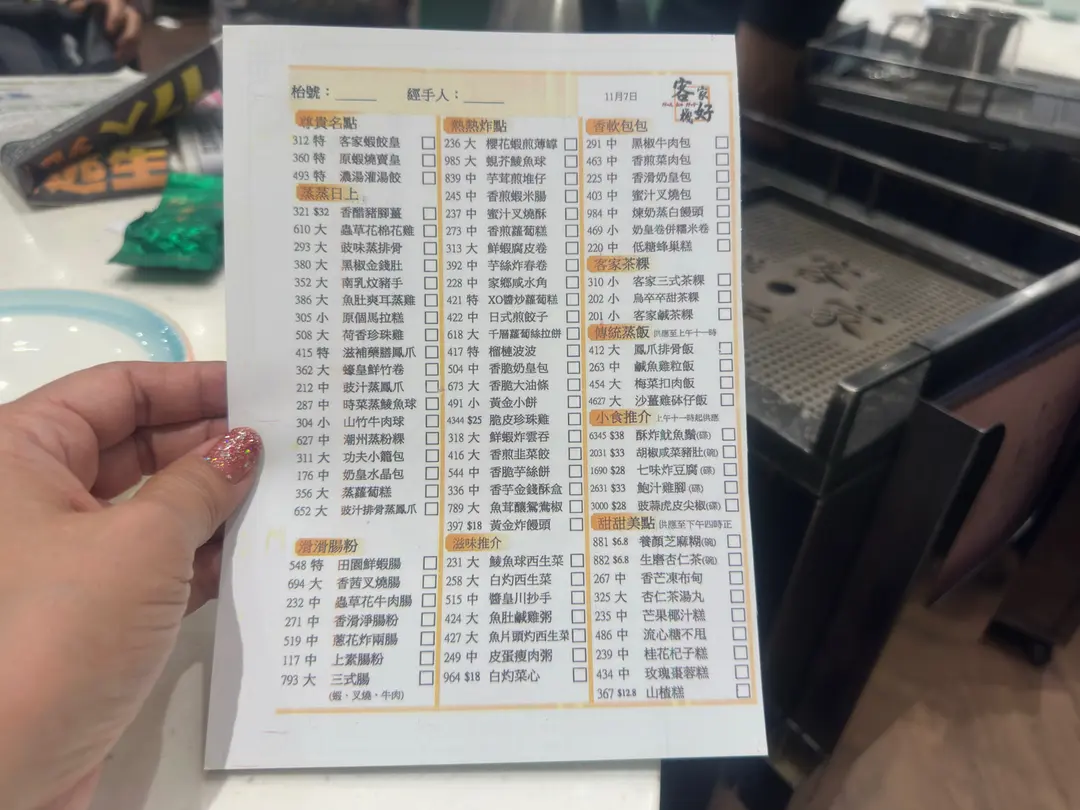 枱號：_____ 經手人：_____
11月7日
客家好棧
尊貴名點
312 特 客家蝦餃皇
360 特 原蝦燒賣皇
493 特 濃湯灌湯餃
蒸蒸日上
321 $32 香醋豬腳薑
610 大 蟲草花棉花雞
293 大 豉味蒸排骨
380 大 黑椒金錢肚
352 大 南乳炆豬手
386 大 魚肚爽耳蒸雞
305 小 原個馬拉糕
508 大 荷香珍珠雞
415 特 滋補藥膳鳳爪
362 大 蠔皇鮮竹卷
212 中 豉汁蒸鳳爪
287 中 時菜蒸鯪魚球
304 小 山竹牛肉球
627 中 潮州蒸粉粿
311 大 功夫小籠包
176 中 奶皇水晶包
356 大 蒸蘿蔔糕
652 大 豉汁排骨蒸鳳爪
滑滑腸粉
548 特 田園鮮蝦腸
694 大 香茜叉燒腸
232 中 蟲草花牛肉腸
271 中 香滑淨腸粉
519 中 蔥花炸兩腸
117 中 上素腸粉
793 大 三式腸
(蝦、叉燒、牛肉)
熱熱炸點
236 大 櫻花蝦煎薄罉
985 大 蜆芥鯪魚球
839 中 芋茸煎堆仔
245 中 香煎蝦米腸
237 中 蜜汁叉燒酥
273 中 香煎蘿蔔糕
313 大 鮮蝦腐皮卷
392 中 芋絲炸春卷
228 中 家鄉咸水角
421 特 XO醬炒蘿蔔糕
422 中 日式煎餃子
618 大 千層蘿蔔絲拉餅
417 特 榴槤波波
504 中 香脆奶皇包
673 大 香脆大油條
491 小 黃金小餅
4344 $25 脆皮珍珠雞
318 大 鮮蝦炸雲吞
416 大 香煎韭菜餃
544 中 香脆芋絲餅
336 中 香芋金錢酥盒
789 大 魚茸釀鴛鴦椒
397 $18 黃金炸饅頭
滋味推介
231 大 鯪魚球西生菜
258 大 白灼西生菜
515 中 醬皇川抄手
424 大 魚肚鹹雞粥
427 大 魚片頭灼西生菜
249 中 皮蛋瘦肉粥
964 $18 白灼菜心
香軟包包
291 中 黑椒牛肉包
463 中 香煎菜肉包
225 中 香滑奶皇包
403 中 蜜汁叉燒包
984 中 煉奶蒸白饅頭
469 小 奶皇卷併糯米卷
220 中 低糖蜂巢糕
客家茶粿
310 小 客家三式茶粿
202 小 烏卒卒甜茶粿
201 小 客家鹹茶粿
傳統蒸飯 供應至上午十一時
412 大 鳳爪排骨飯
263 中 鹹魚雞粒飯
454 大 梅菜扣肉飯
4627 大 沙薑雞砵仔飯
小食推介 上午十一時起供應
6345 $38 酥炸魷魚鬚(碟)
2031 $33 胡椒咸菜豬肚(碗)
1690 $28 七味炸豆腐(碟)
2631 $33 鮑汁雞腳(碟)
3000 $28 豉蒜虎皮尖椒(碟)
甜甜美點 供應至下午四時正
881 $6.8 養顏芝麻糊(碗)
882 $6.8 生磨杏仁茶(碗)
267 中 香芒凍布甸
325 大 杏仁茶湯丸
235 中 芒果椰汁糕
486 中 流心糖不甩
239 中 桂花杞子糕
434 中 玫瑰棗蓉糕
367 $12.8 山楂糕